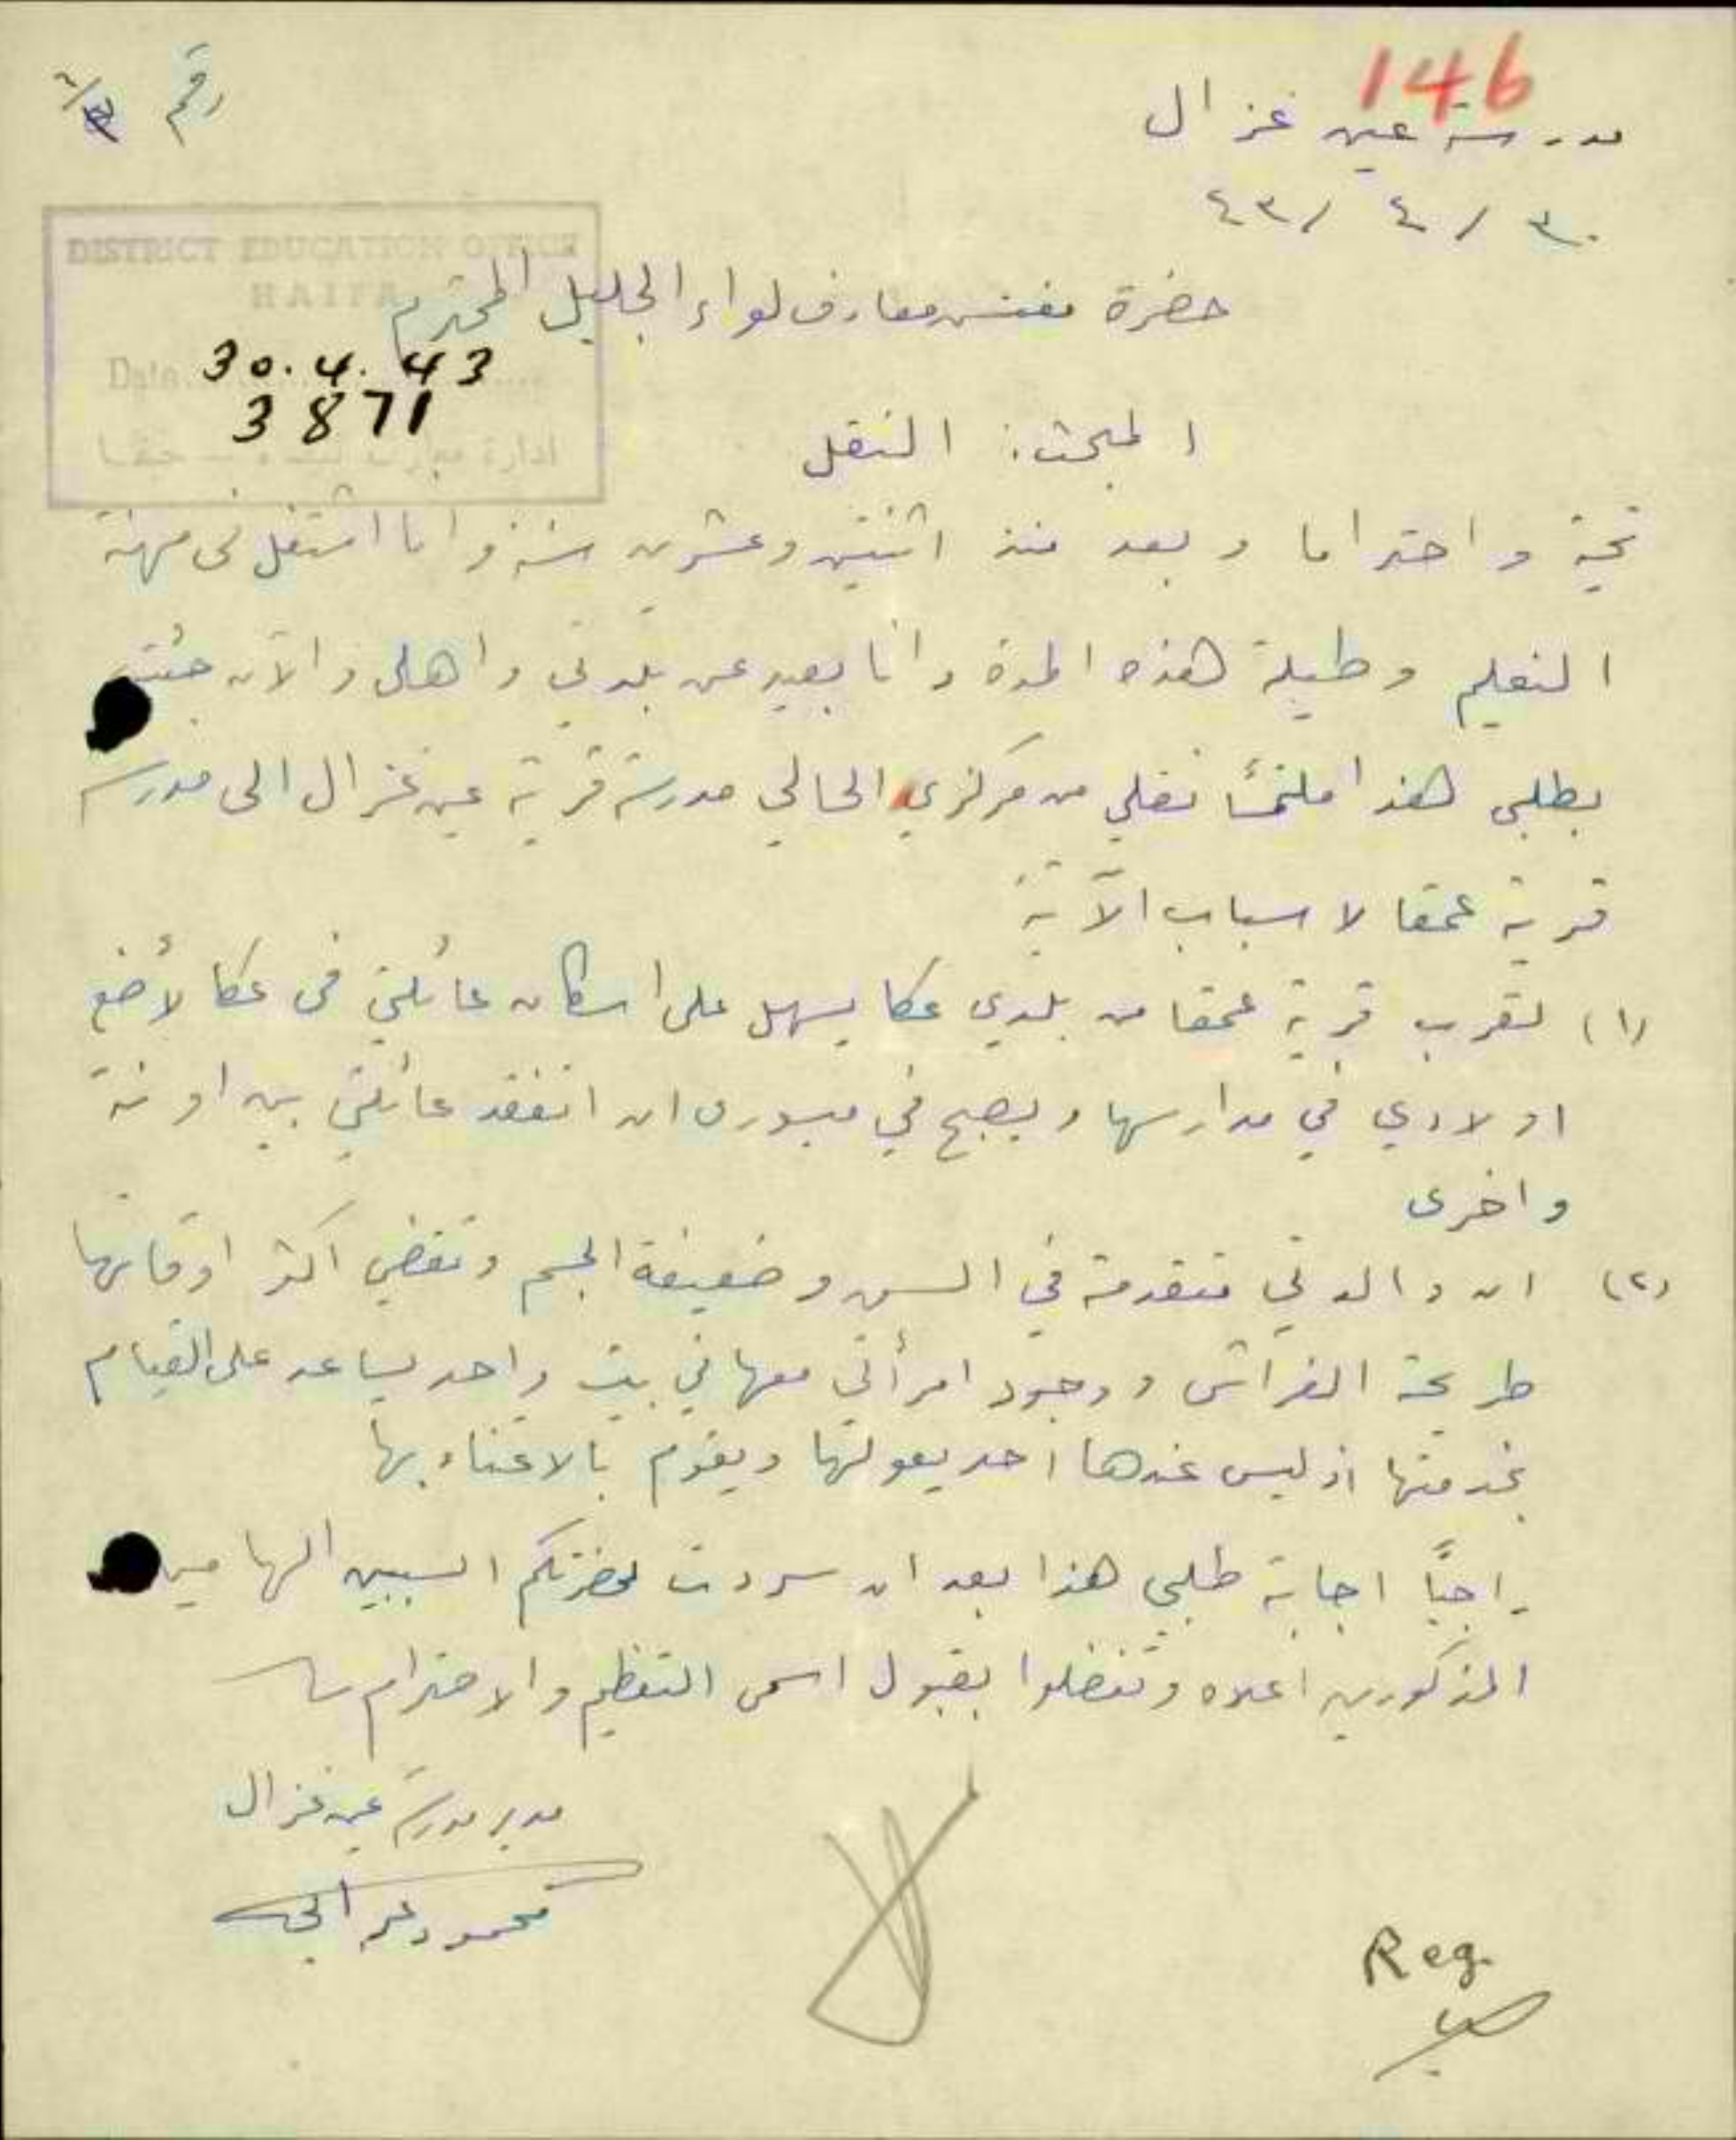 146
مدرسة عين غزال
رقم
٣٠ / ٤ / ٤٣
DISTRICT EDUCATION OFFICE
HAIFA
Date 30.4.43
3871
ادارة معارف لواء حيفا
حضرة مفتش معارف لواء الجليل المحترم
المبحث: النقل
تحية واحتراما وبعد منذ اثنتين وعشرين سنة وانا اشتغل في مهنة
التعليم وطيلة هذه المدة وانا بعيد عن بلدتي واهلي والآن جئت
بطلبي هذا ملتمسًا نقلي من مركزي الحالي مدرسة قرية عين غزال الى مدرسة
قرية عمقا لاسباب الآتية
(١) لقرب قرية عمقا من بلدي عكا يسهل علي اسكان عائلتي في عكا لأضع
اولادي في مدارسها ويصبح في ميسوري ان اتفقد عائلتي بين اونة
واخرى
(٢) ان والدتي متقدمة في السن وضعيفة الجسم وتقضي اكثر اوقاتها
طريحة الفراش ووجود امرأتي معها في بيت واحد يساعد على القيام
بخدمتها اذ ليس عندها احد يعولها ويقوم بالاعتناء بها
راجيًا اجابة طلبي هذا بعد ان سردت لحضرتكم السببين الهامين
المذكورين اعلاه وتفضلوا بقبول اسمى التعظيم والاحترام
مدير مدرسة عين غزال
محمود
Reg.